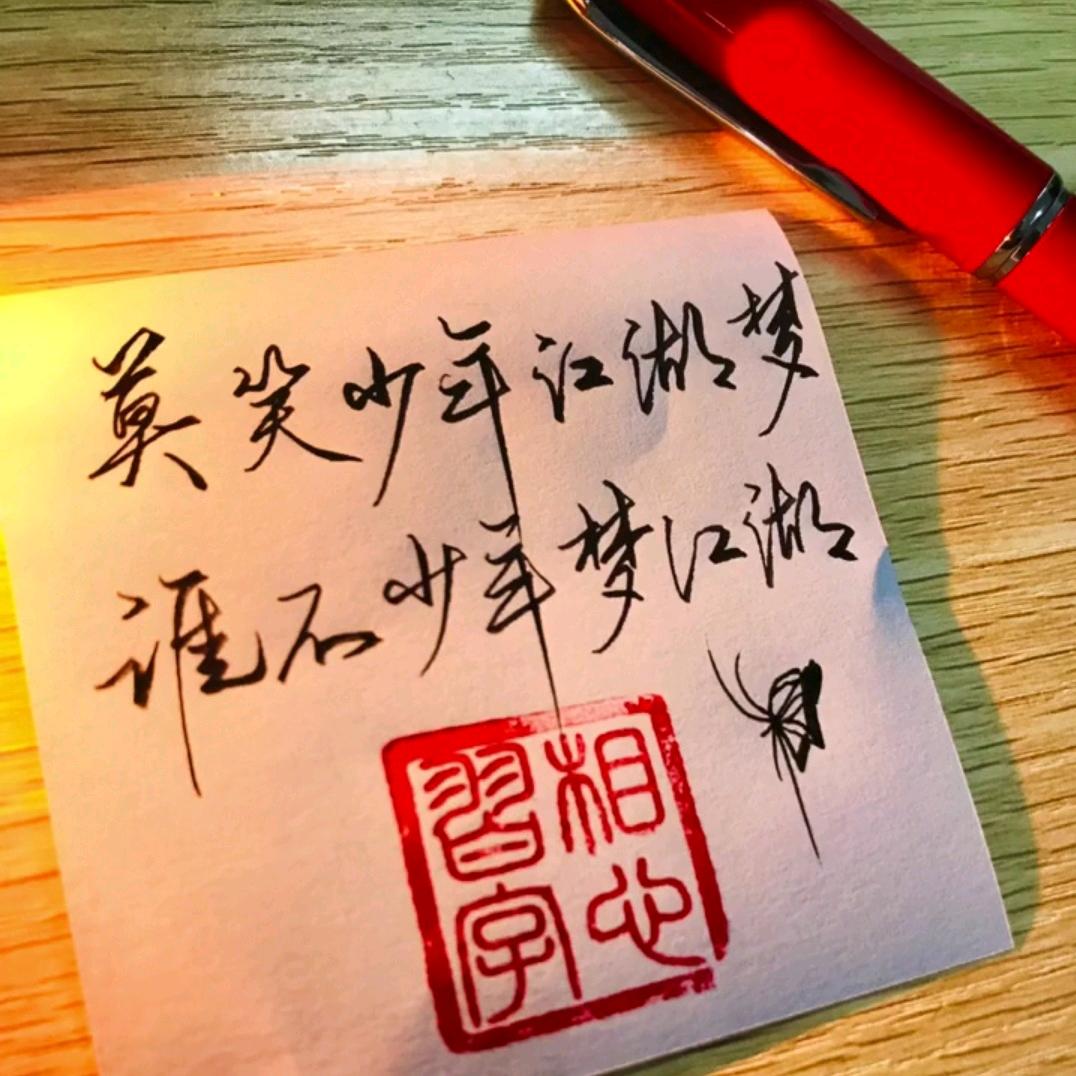 莫笑少年江湖梦
谁不少年梦江湖
相心
習字